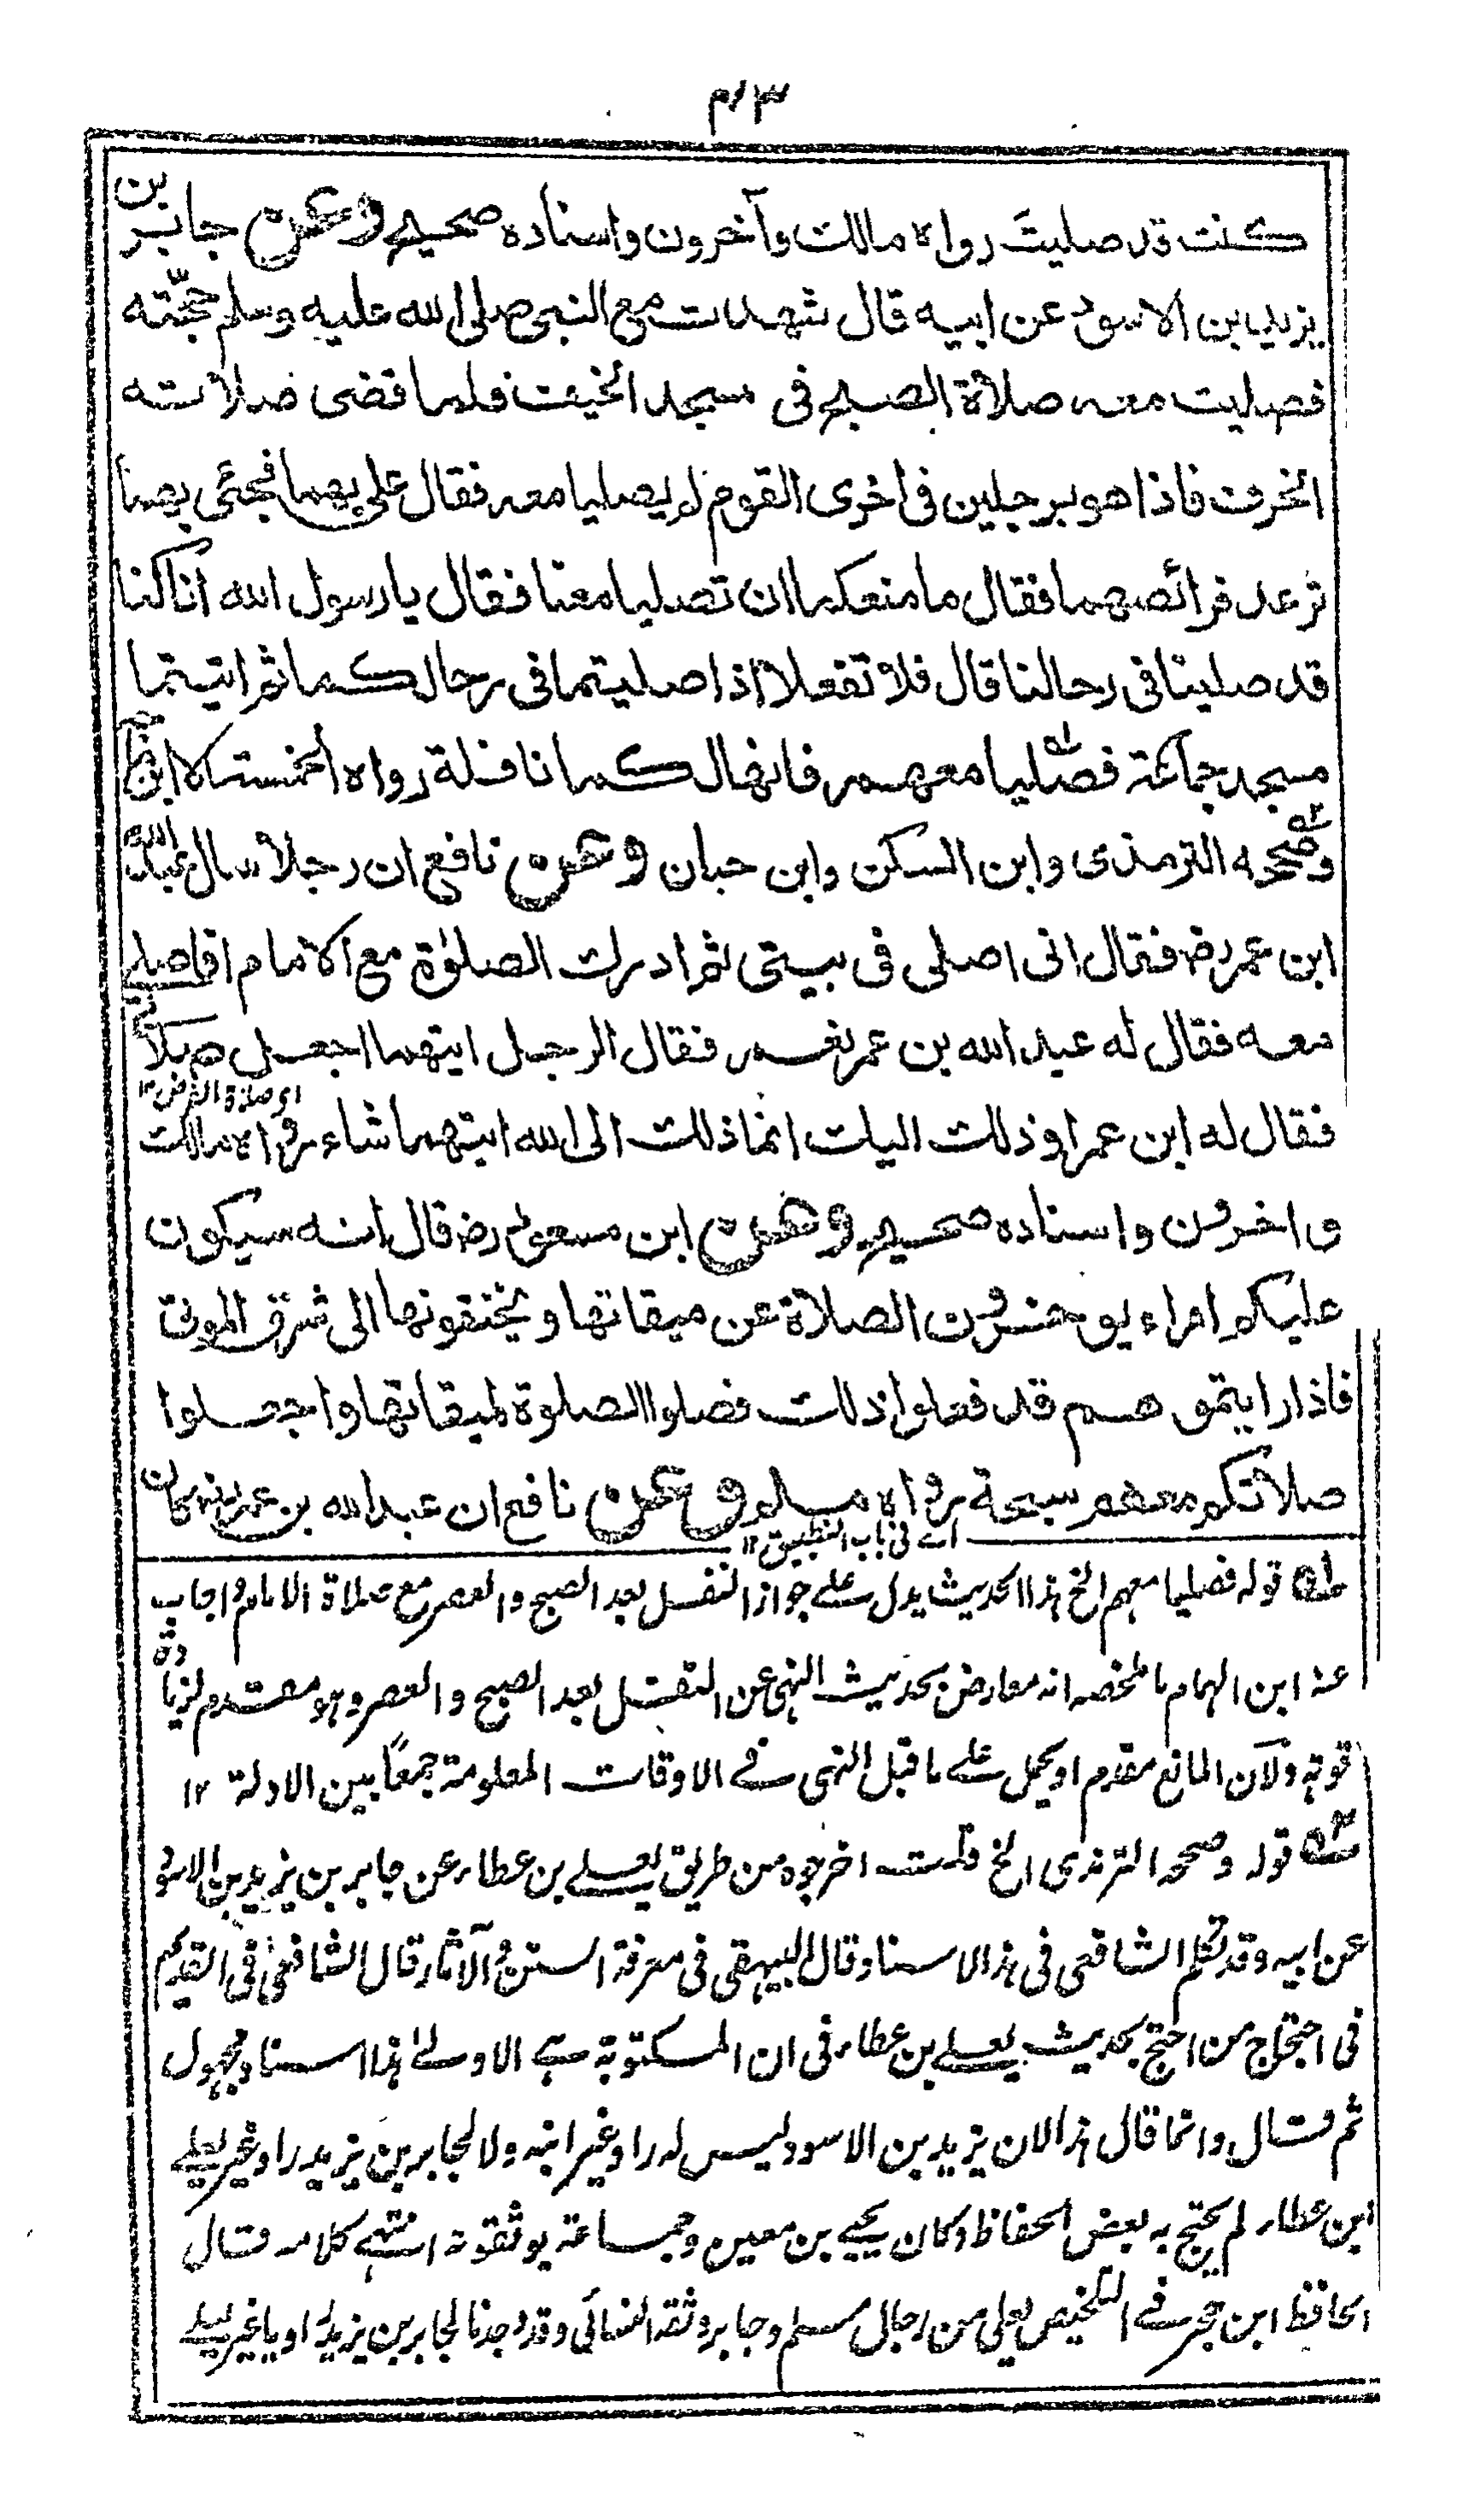 كنت قد صليت رواه مالك وآخرون واسناده صحيح وعن جابر بن
يزيد بن الاسود عن ابيه قال شهدت مع النبى صلى الله عليه وسلم حجّته
فصليت معه صلاة الصبح فى مسجد الخيف فلما قضى صلاته
انحرف فاذا هو برجلين فى اخرى القوم لم يصليا معه فقال على بهما فجئى بهما
ترعد فرائصهما فقال ما منعكما ان تصليا معنا فقال يا رسول الله انا كنا
قد صلينا فى رحالنا قال فلا تفعلا اذا صليتما فى رحالكما ثم اتيتما
مسجد جماعة فصليا معهم فانها لكما نافلة رواه الخمسة الا ابن ماجة
وصححه الترمذى وابن السكن وابن حبان وعن نافع ان رجلا سال عبد الله
ابن عمر رض فقال انى اصلى فى بيتى ثم ادرك الصلوٰة مع الامام افاصلى
معه فقال له عبد الله بن عمر نعم فقال الرجل ايتهما اجعل صلاتى
اى صلاة الفرض ١٢
فقال له ابن عمر او ذلك اليك انما ذلك الى الله ايتهما شاء رواه مالك
واخرون واسناده صحيح وعن ابن مسعود رض قال انه سيكون
عليكم امراء يوخرون الصلاة عن ميقاتها ويخنقونها الى شرق الموتى
فاذا رايتموهم قد فعلوا ذلك فصلوا الصلوة لميقاتها واجعلوا
صلاتكم معهم سبحة رواه مسلم وعن نافع ان عبد الله بن عمر رض كان
اے فى باب التطبيق ١٢
لـه قوله فصليا معهم الخ هذا الحديث يدل على جواز النفل بعد الصبح والعصر مع صلاة الامام واجاب
عنه ابن الهمام ما ملخصه انه معارض بحديث النهى عن التنفل بعد الصبح والعصر وهو مقدم لزيادة
قوته ولان المانع مقدم او يحمل على ما قبل النهى فے الاوقات المعلومة جمعًا بين الادلة ١٢
٢ـه قوله وصححه الترمذى الخ قلت اخرجوه من طريق يعلى بن عطاء عن جابر بن يزيد بن الاسود
عن ابيه وقد تكلم الشافعى فى هذا الاسناد وقال البيهقى فى معرفة السنن والآثار قال الشافعى فى القديم
فى احتجاج من احتج بحديث يعلى بن عطاء فى ان المكتوبة هى الاولى هذا اسناد مجهول
ثم قال وانما قال هذا لان يزيد بن الاسود ليس له راو غير ابنه ولا لجابر بن يزيد راو غير يعلى
ابن عطاء لم يحتج به بعض الحفاظ وكان يحيى بن معين وجماعة يوثقونه انتهى كلامه قال
الحافظ ابن حجر فے التلخيص يعلى من رجال مسلم وجابر وثقه النسائى وقد وجدنا لجابر بن يزيد راويا غير يعلى